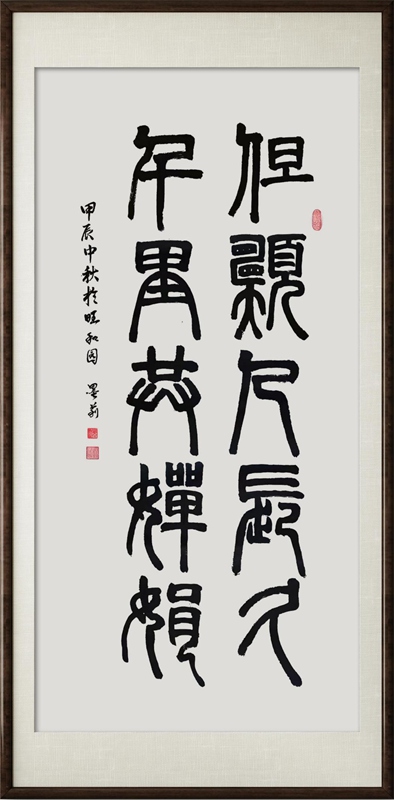 但願人長久
千里共嬋娟
甲辰中秋於晤和園 墨莉